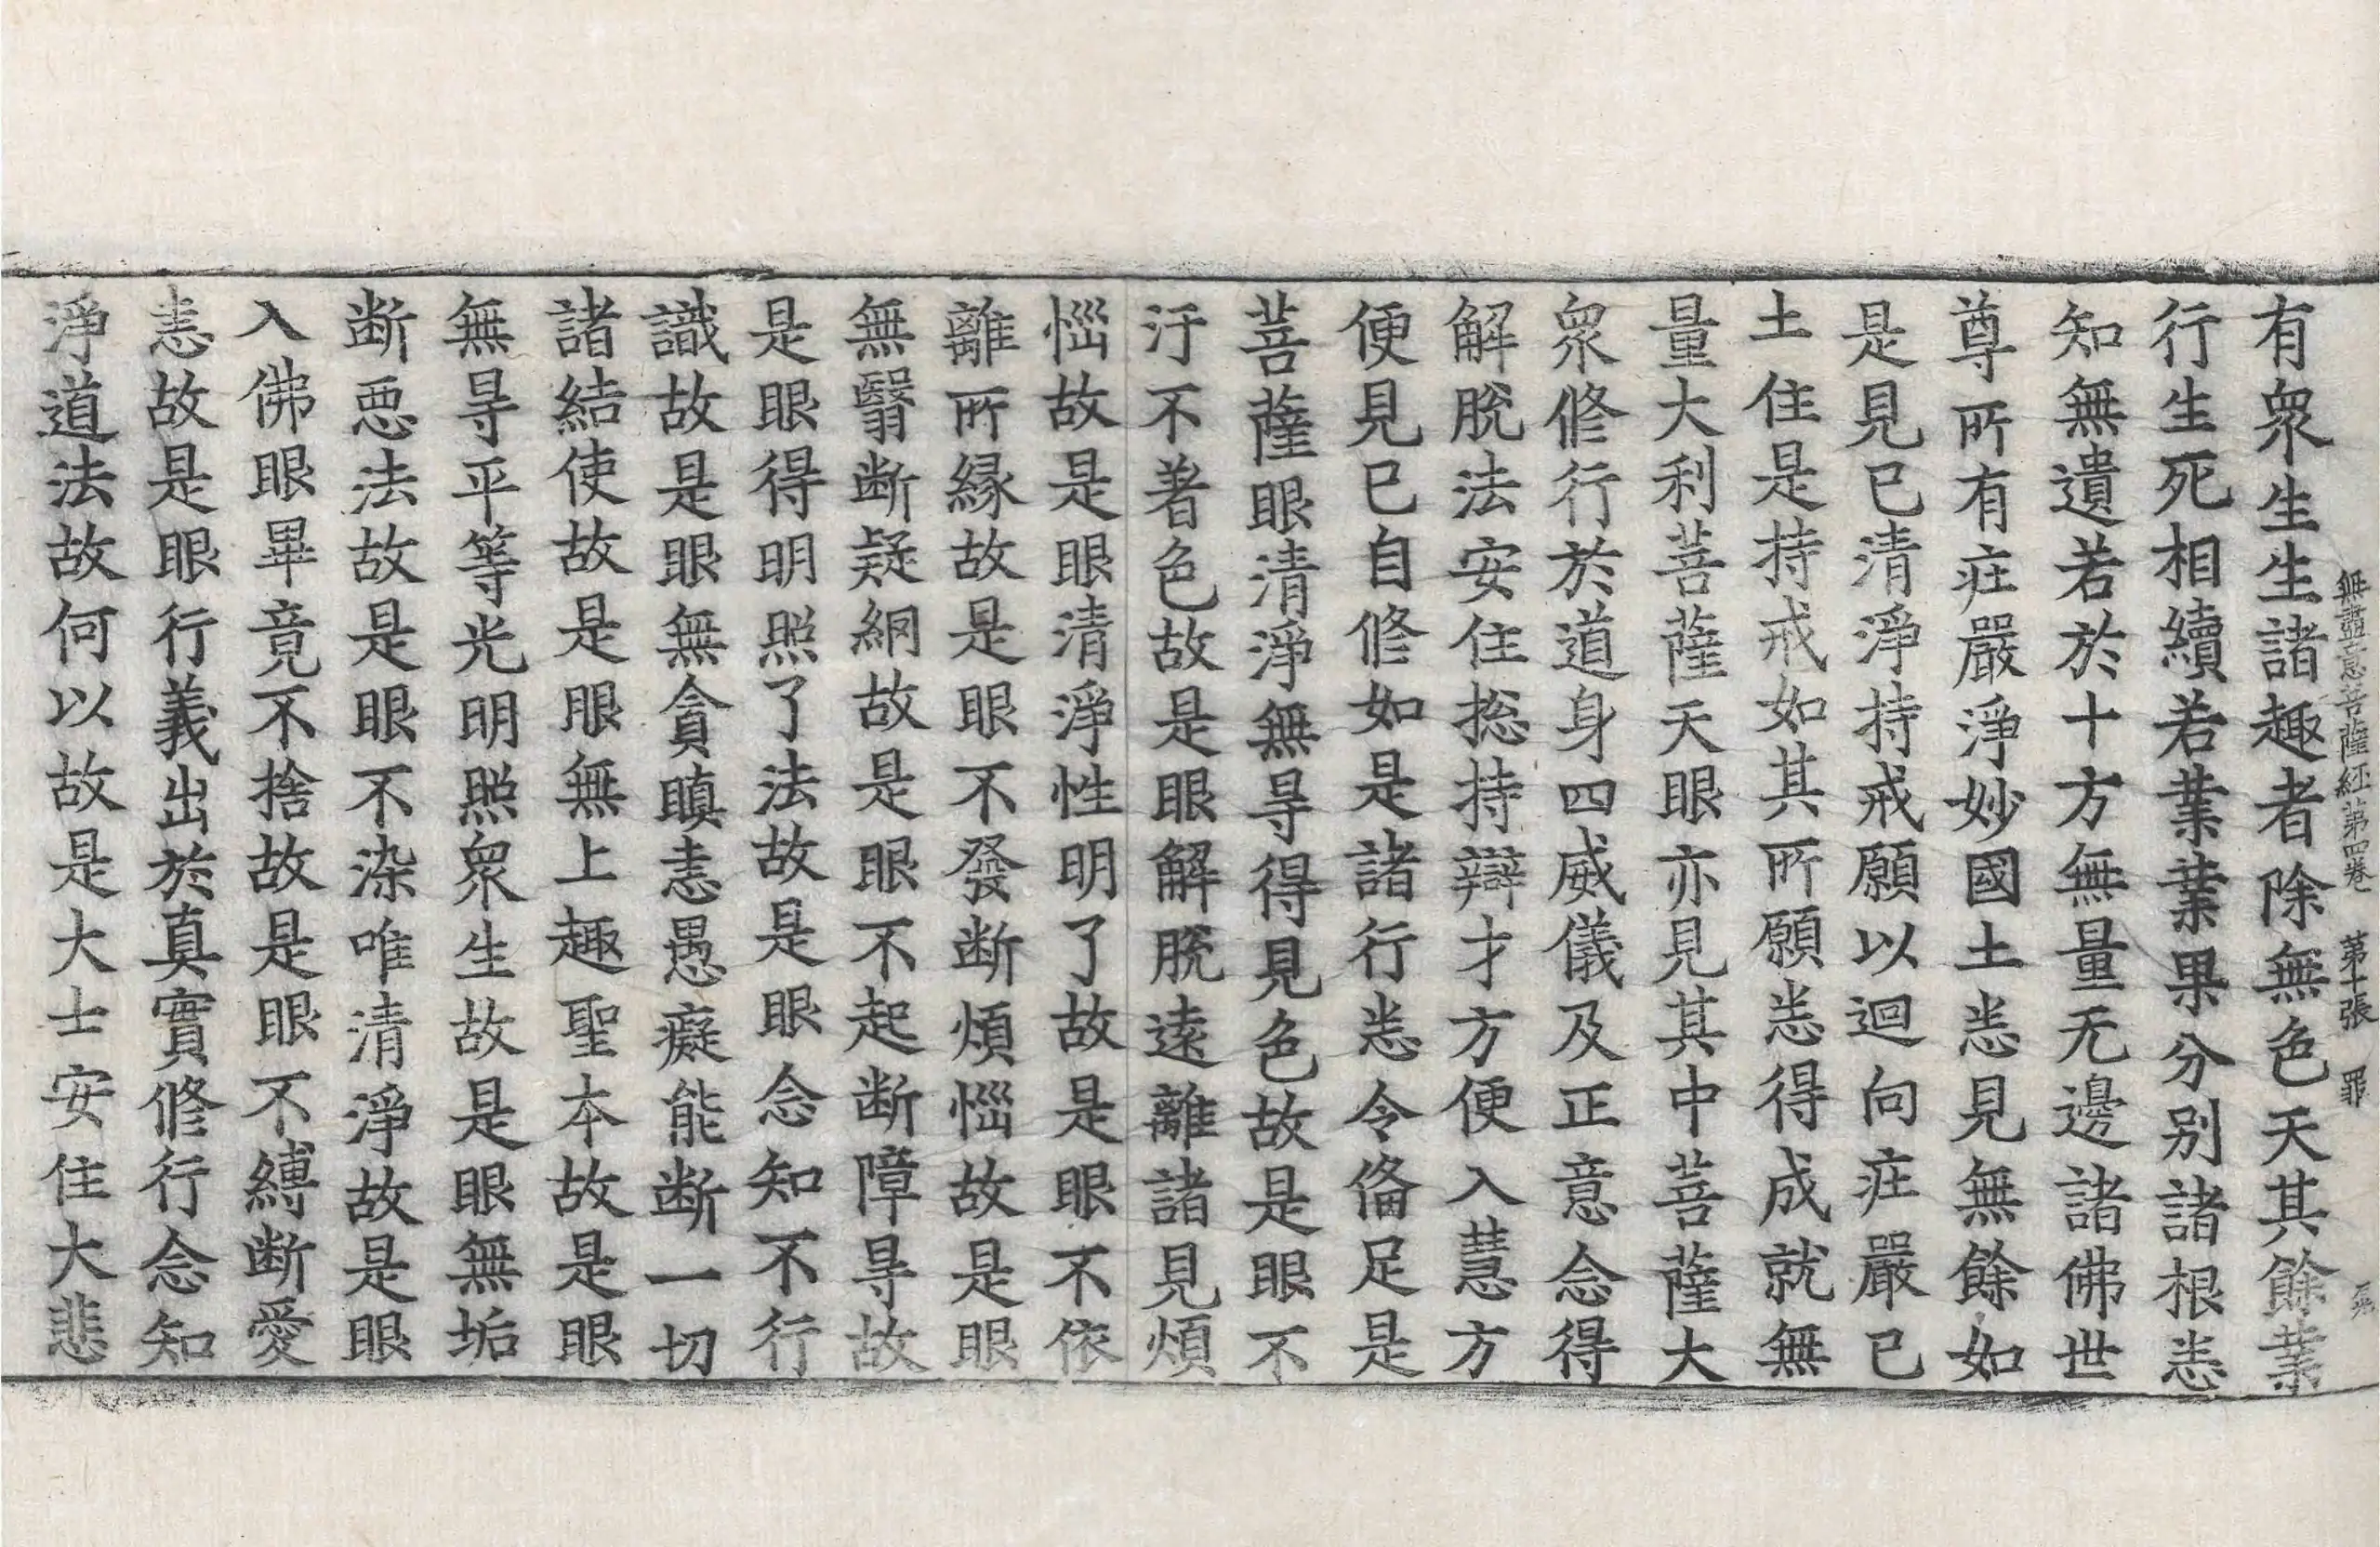 無盡意菩薩經第四卷 第十張 罪
有衆生生諸趣者除無色天其餘業
行生死相續若業業果分別諸根悉
知無遺若於十方無量无邊諸佛世
尊所有莊嚴淨妙國土悉見無餘如
是見已清淨持戒願以迴向莊嚴已
土住是持戒如其所願悉得成就無
量大利菩薩天眼亦見其中菩薩大
衆修行於道身四威儀及正意念得
解脫法安住捴持辯才方便入慧方
便見已自修如是諸行悉令俻足是
菩薩眼清淨無㝵得見色故是眼不
汙不著色故是眼解脫遠離諸見煩
惱故是眼清淨性明了故是眼不依
離所緣故是眼不發斷煩惱故是眼
無翳断疑網故是眼不起断障㝵故
是眼得明照了法故是眼念知不行
識故是眼無貪瞋恚愚癡能断一切
諸結使故是眼無上趣聖本故是眼
無㝵平等光明照衆生故是眼無垢
断惡法故是眼不染唯清淨故是眼
入佛眼畢竟不捨故是眼不縛断愛
恚故是眼行義出於真實修行念知
淨道法故何以故是大士安住大悲